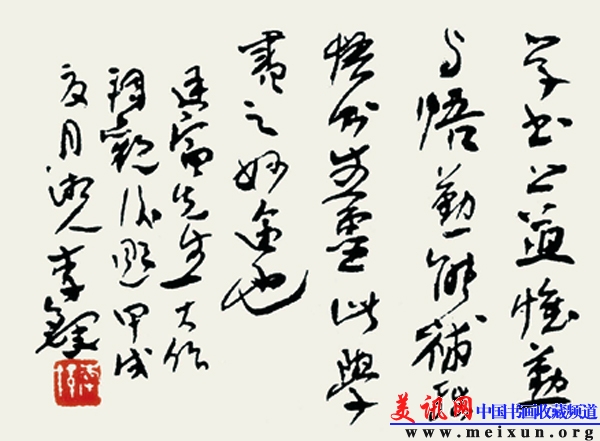 学书之道惟勤
与悟勤能补拙
悟生灵此学
書之妙途也
先生大作
观后题甲戌
夏月湘人李鐸
美讯网 中国书画收藏频道
www.meixun.org